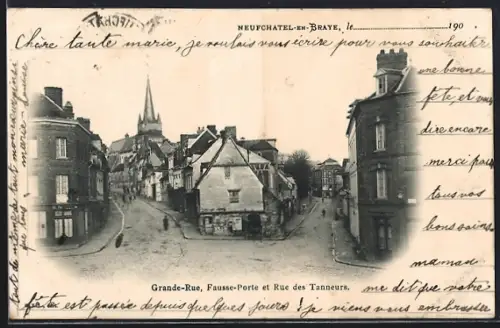 NEUFCHATEL-EN-BRAYE, le 190
Chère tante marie, je voulais vous écrire pour vous souhaiter
une bonne
fête et vous
dire encore
merci pour
tous vos
bons soins
maman
me dit que votre
fête est passée depuis quelques jours ! je viens vous embrasser
de tout mon cœur
marie-Louise
Grande-Rue, Fausse-Porte et Rue des Tanneurs.